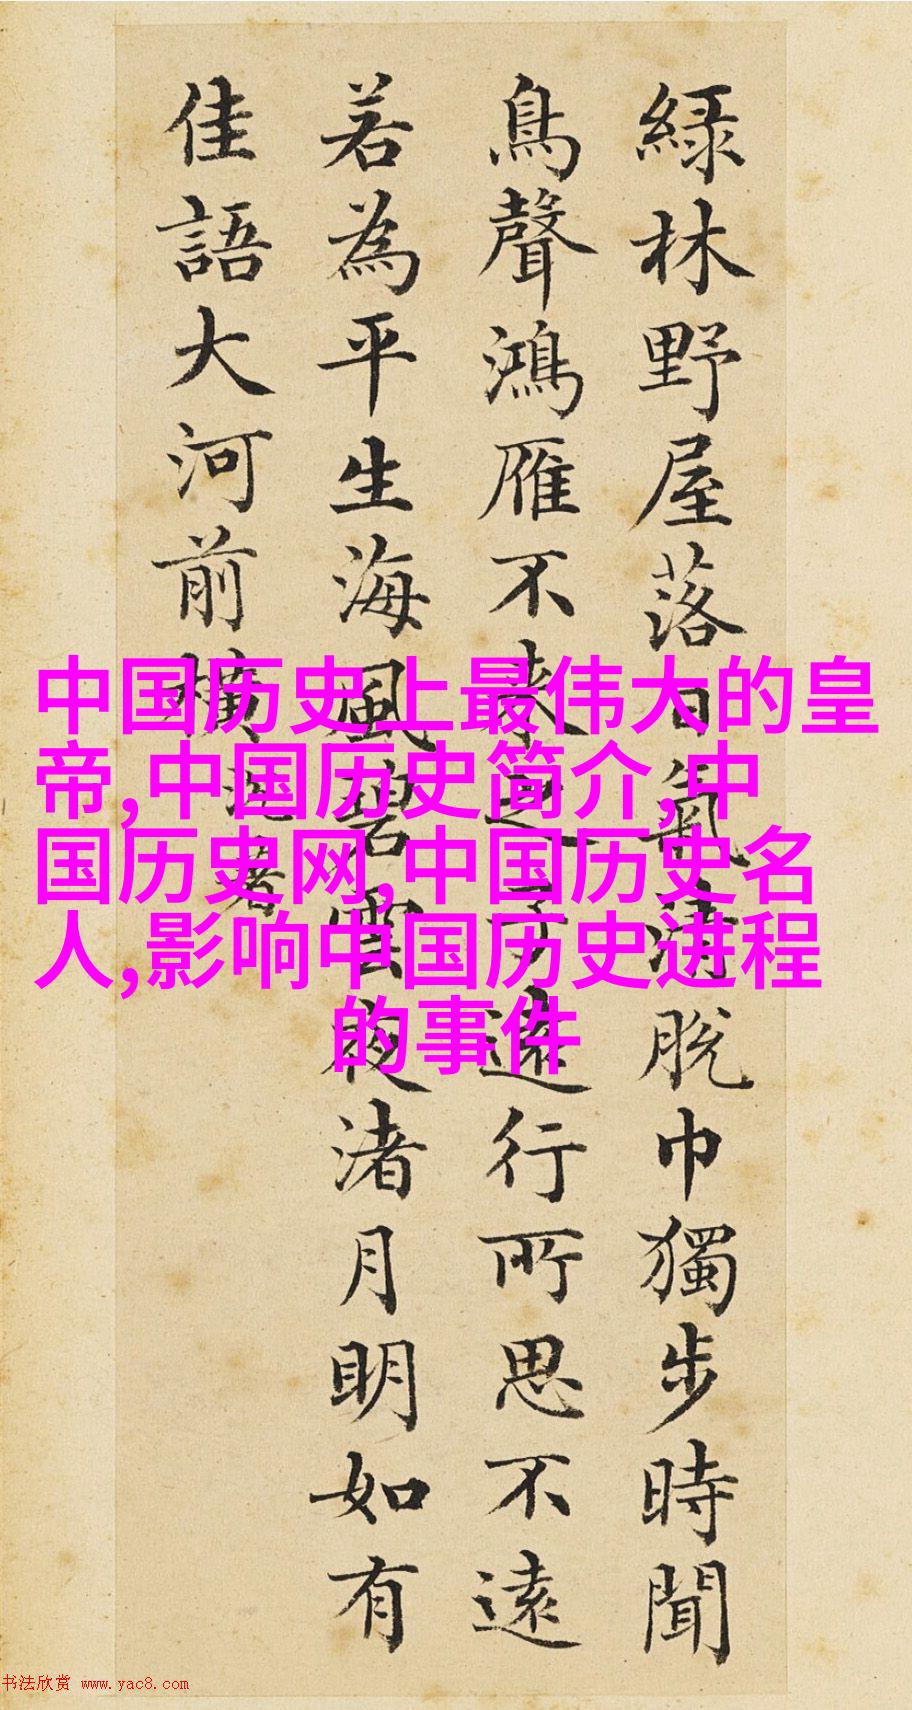 緑林野屋落日氣清脫巾獨步時聞
鳥聲鴻雁不來之子遠行所思不遠
若為平生海風碧雲夜渚月明如有
佳語大河前橫
中国历史上最伟大的皇
帝,中国历史简介,中
国历史网,中国历史名
人,影响中国历史进程
的事件
书法欣赏 www.yac8.com